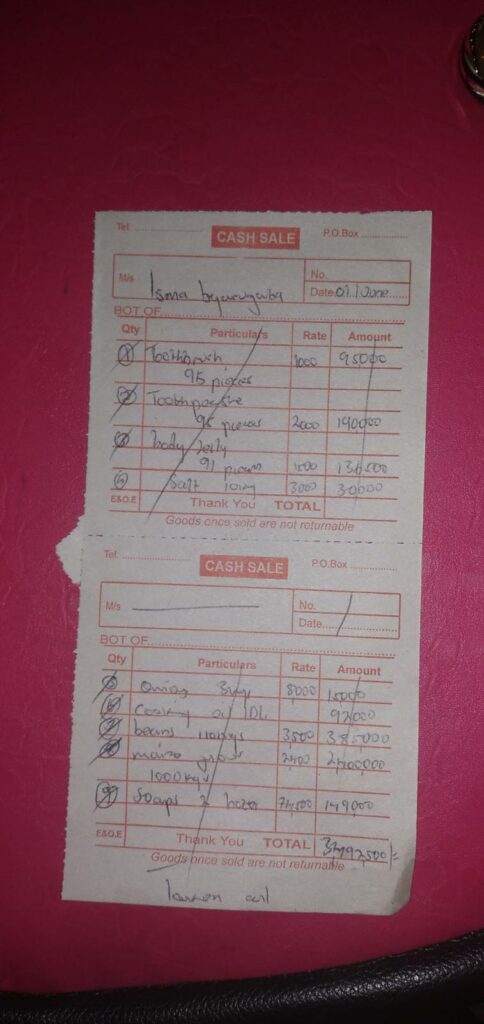 Tel. P.O.Box
CASH SALE
M/s Isma No.
Date 01/June
BOT OF
Qty Particulars Rate Amount
1 Toothbrush 1000 95000
95 pieces
2 Toothpaste
95 pieces 2000 190000
3 body Jelly
91 pieces 1500 136500
4 Salt 3000 30000
E&O.E Thank You TOTAL
Goods once sold are not returnable
Tel. P.O.Box
CASH SALE
M/s No.
Date
BOT OF
Qty Particulars Rate Amount
5 15000
6 Cooking oil 92000
7 beans 110kgs 3500 385000
8 maize 2400 2400000
1000kgs
9 Soaps 2 boxes 74500 149000
E&O.E Thank You TOTAL
Goods once sold are not returnable